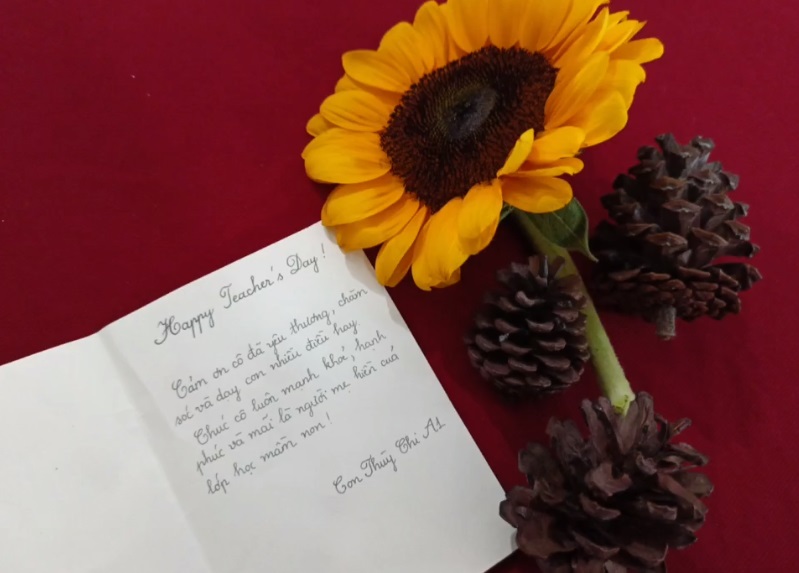 Happy Teacher's Day!
Cảm ơn cô đã yêu thương, chăm
sóc và dạy con nhiều điều hay.
Chúc cô luôn mạnh khoẻ, hạnh
phúc và mãi là người mẹ hiền của
lớp học mầm non!
Con Thùy Chi A1